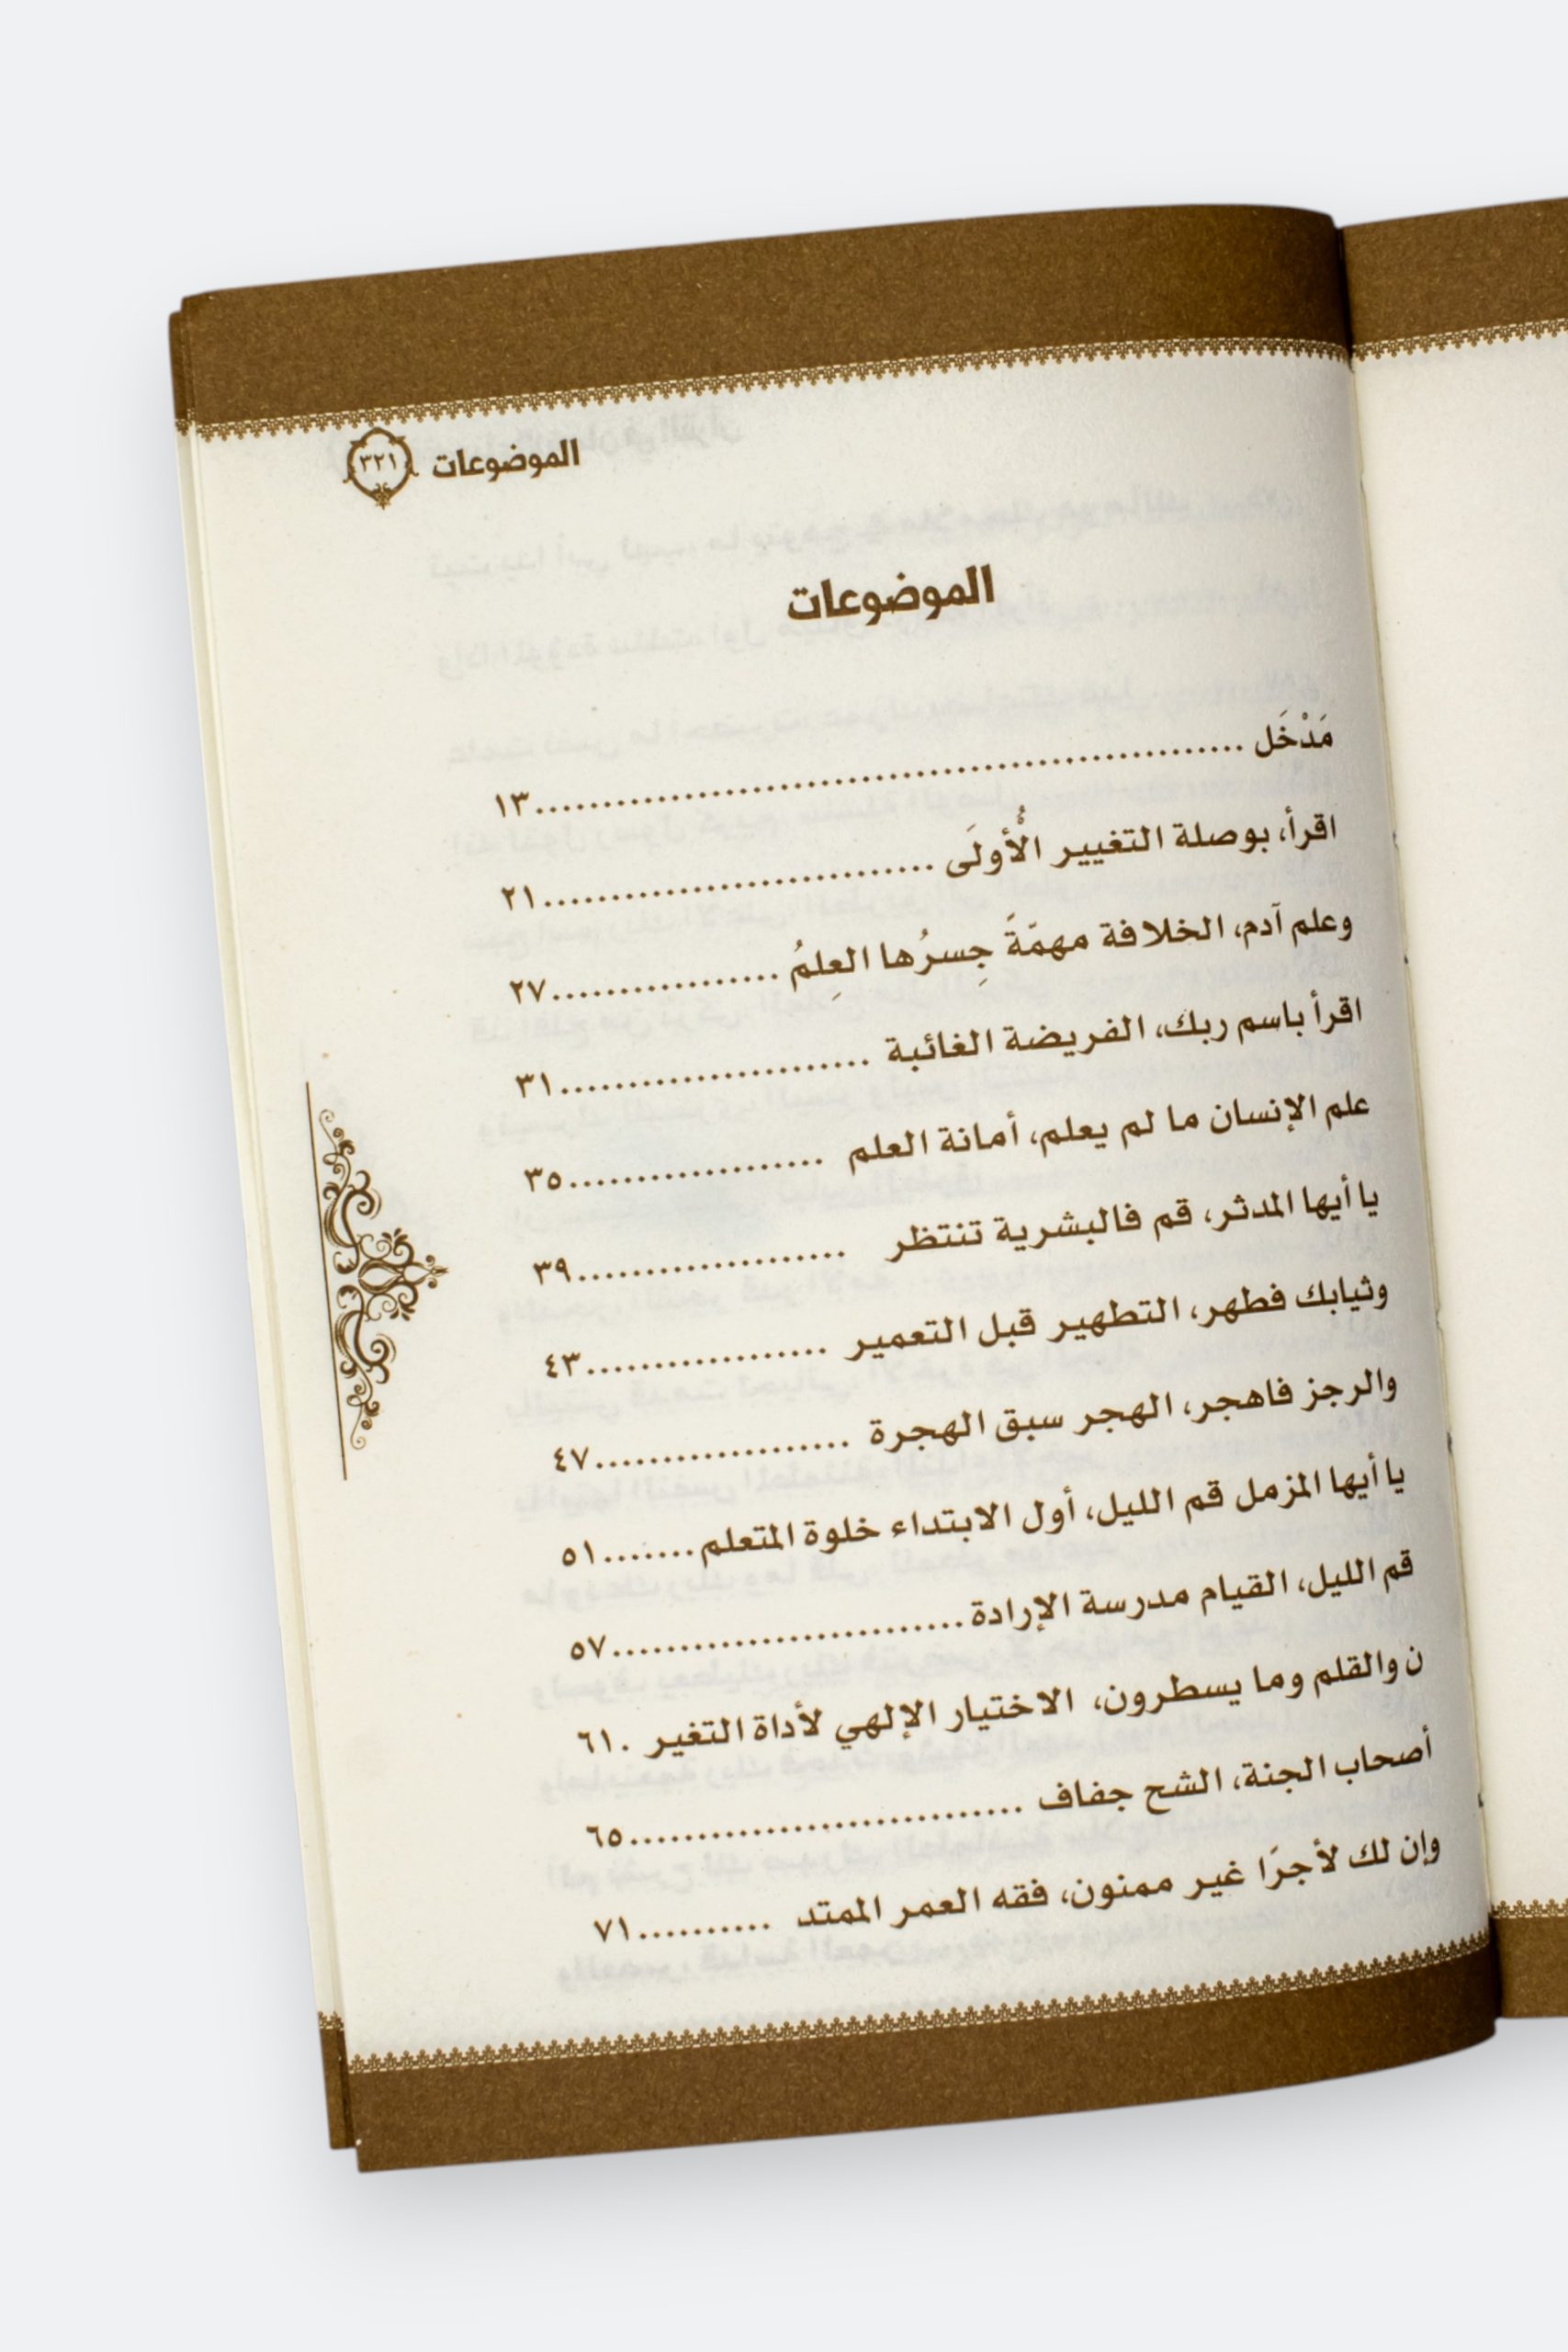 الموضوعات ٣٢١
الموضوعات
مَدْخَل ..................................................... ١٣
اقرأ، بوصلة التغيير الأُولَى ............................. ٢١
وعلم آدم، الخلافة مهمّةً جِسرُها العِلمُ ................. ٢٧
اقرأ باسم ربك، الفريضة الغائبة ....................... ٣١
علم الإنسان ما لم يعلم، أمانة العلم ................... ٣٥
يا أيها المدثر، قم فالبشرية تنتظر .................... ٣٩
وثيابك فطهر، التطهير قبل التعمير .................. ٤٣
والرجز فاهجر، الهجر سبق الهجرة ................... ٤٧
يا أيها المزمل قم الليل، أول الابتداء خلوة المتعلم ....... ٥١
قم الليل، القيام مدرسة الإرادة .......................... ٥٧
ن والقلم وما يسطرون، الاختيار الإلهي لأداة التغير . ٦١
أصحاب الجنة، الشح جفاف ............................. ٦٥
وإن لك لأجرًا غير ممنون، فقه العمر الممتد .......... ٧١